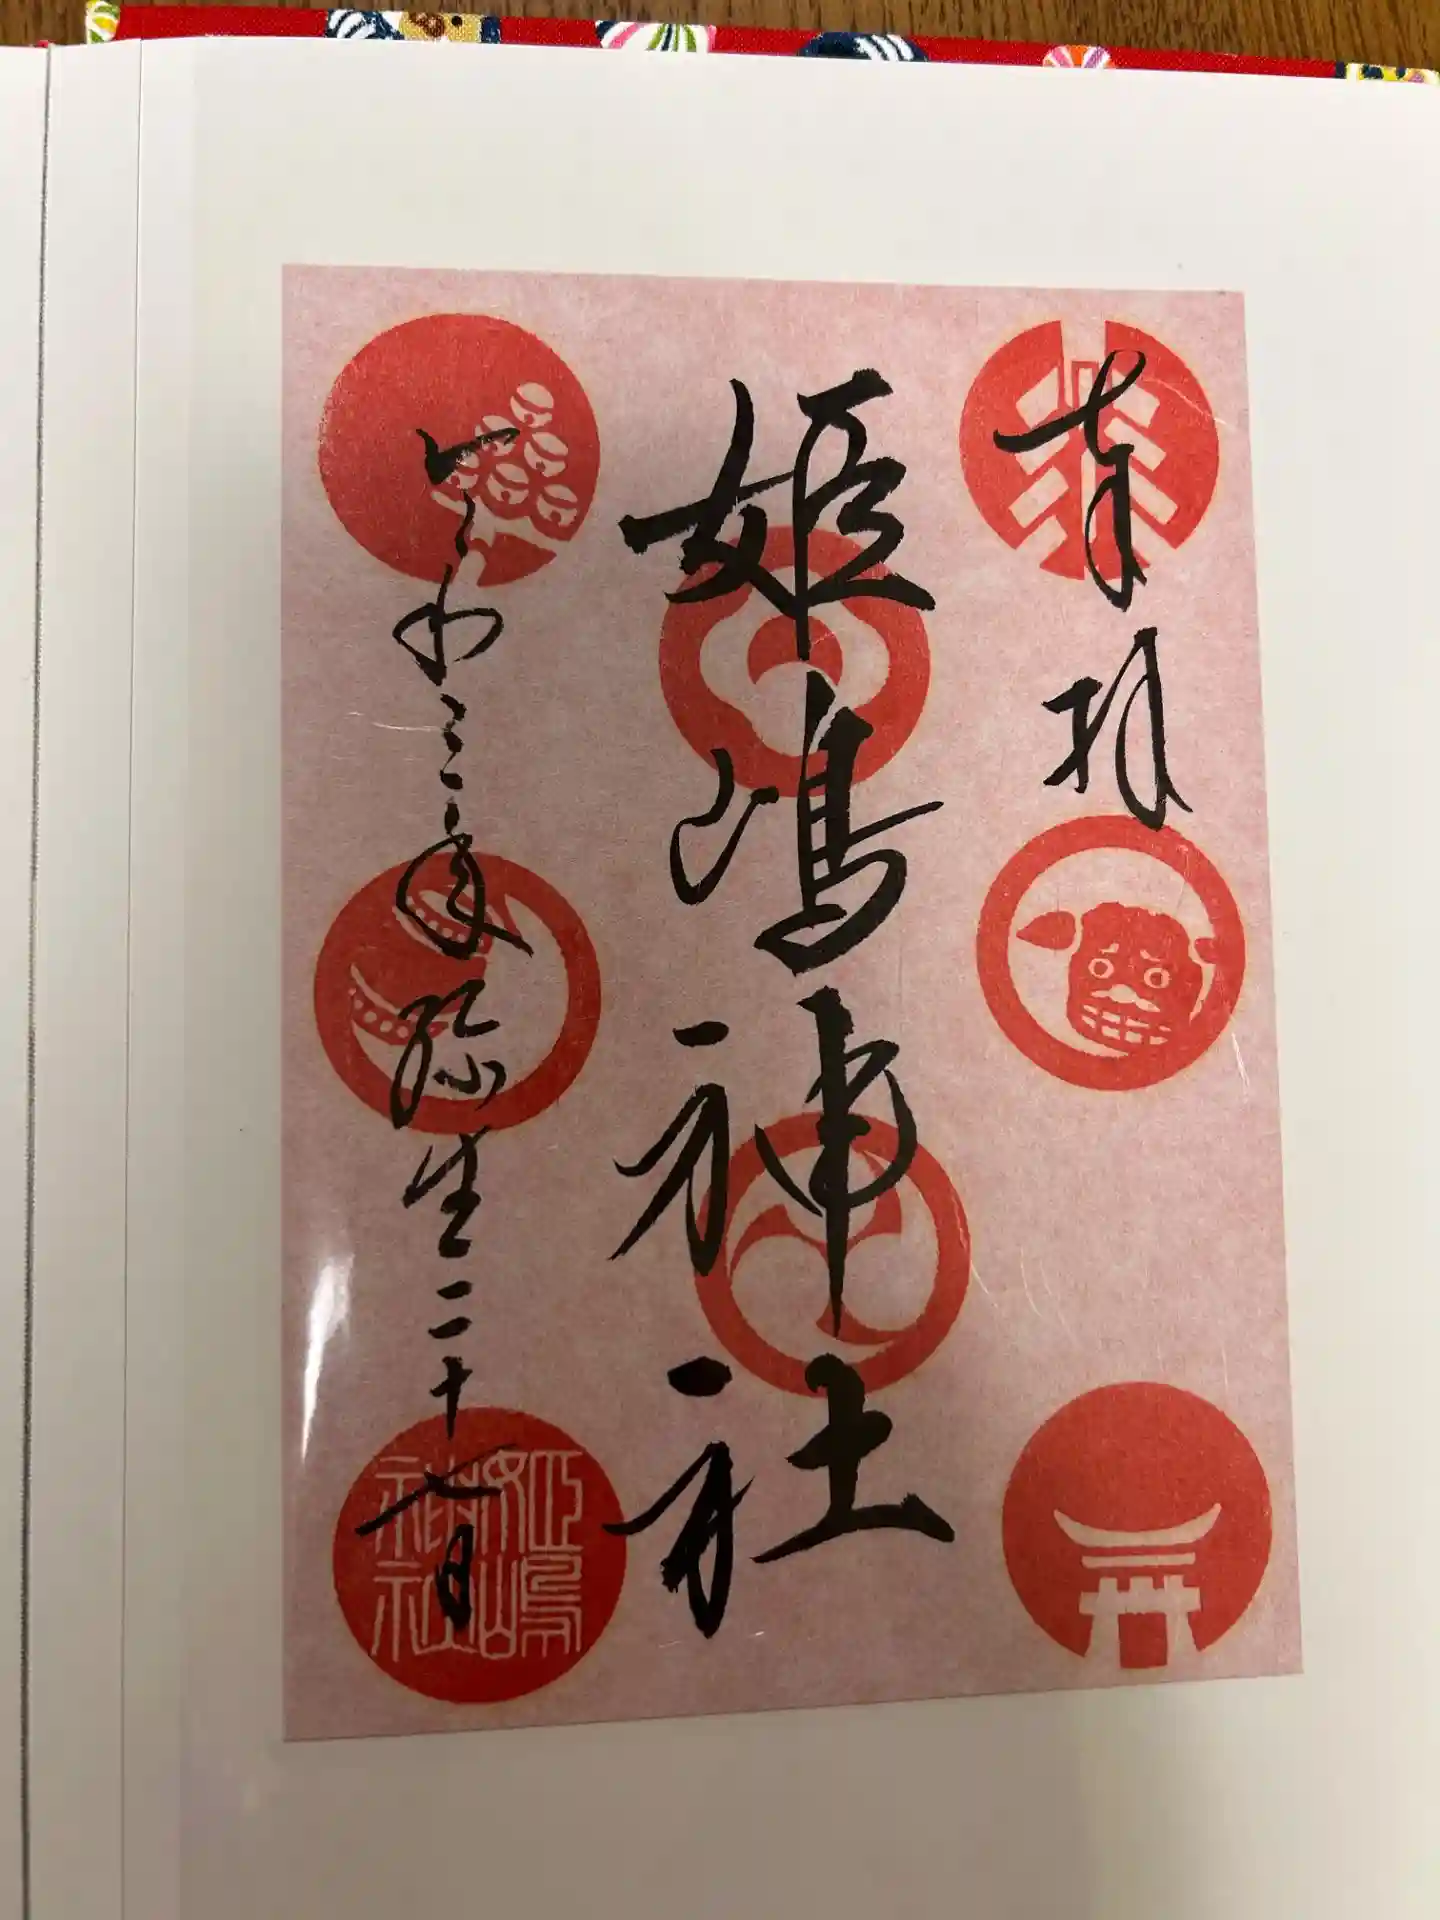 奉拝
姫嶋神社
令和三年弥生二十七日
姫嶋
神社